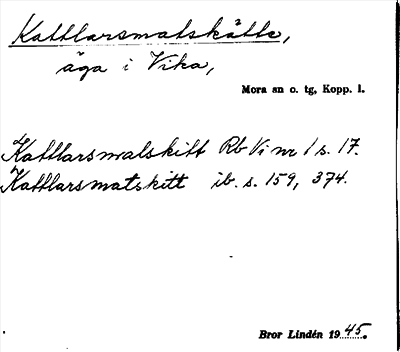 Kattlarsmatskätte,
äga i Vika,
Mora sn o. tg, Kopp. l.
Kattlarsmalskitt Rb Vi nr 1 s. 17.
Kattlarsmatskitt ib. s. 159, 374.
Bror Lindén 1945.